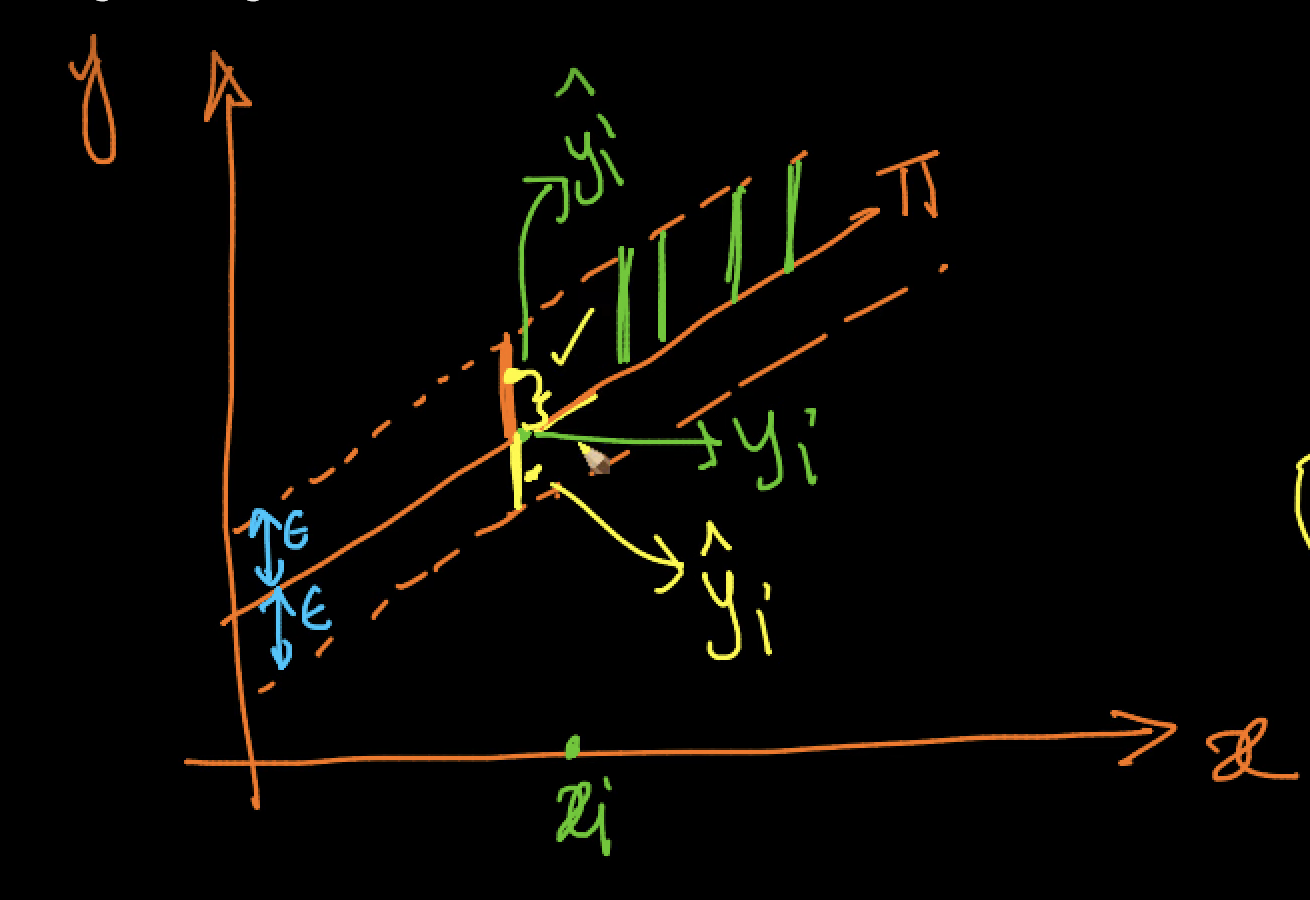 y
ŷi
π
yi
ϵ
ϵ
ŷi
x
xi